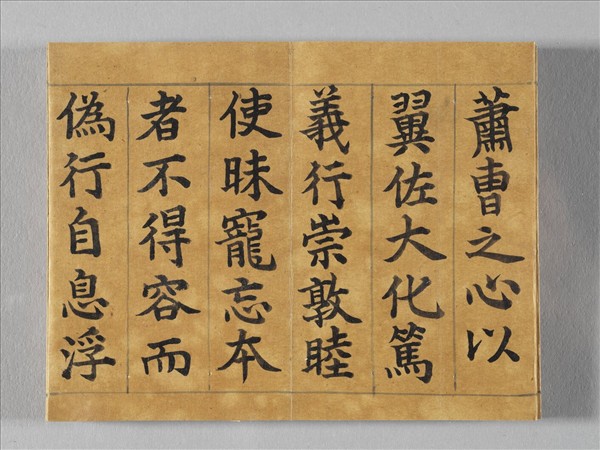 蕭曺之心以
翼佐大化篤
義行崇敦睦
使昧寵忘本
者不得容而
偽行自息浮